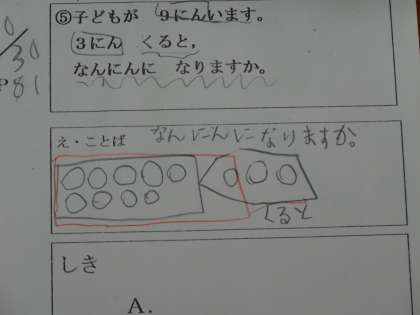 ⑤子どもが 9にんいます。
3にん くると,
なんにんに なりますか。
え・ことば なんにんになりますか。
くると
しき
A.